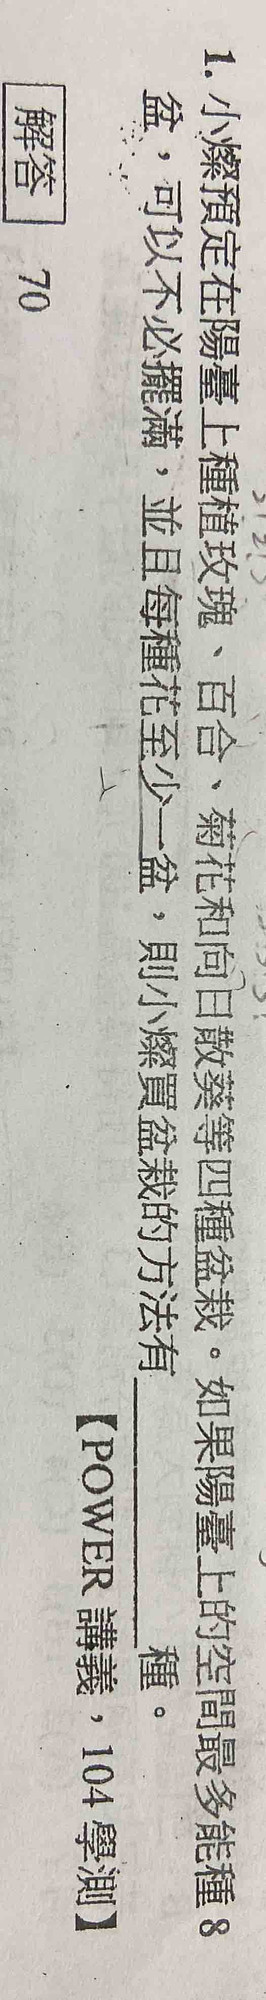 1. 小燦預定在陽臺上種植玫瑰、百合、菊花和向日散葵等四種盆栽。如果陽臺上的空間最多能種 8
盆，可以不必擺滿，並且每種花至少一盆，則小燦買盆栽的方法有________種。
【POWER 講義，104 學測】
解答 70